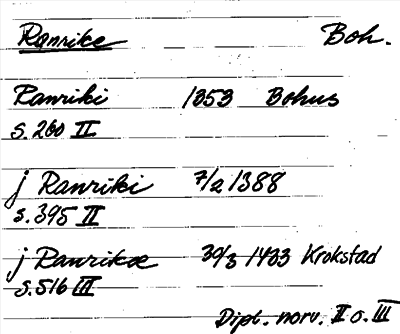 Ranrike Boh.
Ranriki 1353 Bohus
s. 260 II
j Ranriki 7/2 1388
s. 395 II
j Ranrikæ 30/3 1403 Krokstad
s. 516 III
Dipl. norv. II o. III